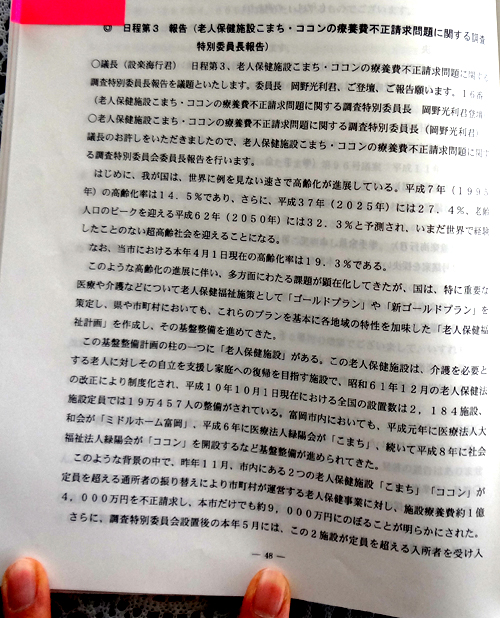 ◎ 日程第3 報告（老人保健施設こまち・ココンの療養費不正請求問題に関する調査
特別委員長報告）
○議長（設楽海行君） 日程第3、老人保健施設こまち・ココンの療養費不正請求問題に関する
調査特別委員長報告を議題といたします。委員長 岡野光利君、ご登壇、ご報告願います。16番
（老人保健施設こまち・ココンの療養費不正請求問題に関する調査特別委員長 岡野光利君登壇
○老人保健施設こまち・ココンの療養費不正請求問題に関する調査特別委員長（岡野光利君）
議長のお許しをいただきましたので、老人保健施設こまち・ココンの療養費不正請求問題に関す
る調査特別委員会委員長報告を行います。
はじめに、我が国は、世界に例を見ない速さで高齢化が進展している。平成7年（1995
年）の高齢化率は14．5％であり、さらに、平成37年（2025年）には27．4％、老齢
人口のピークを迎える平成62年（2050年）には32．3％と予測され、いまだ世界で経験
したことのない超高齢社会を迎えることになる。
なお、当市における本年4月1日現在の高齢化率は19．3％である。
このような高齢化の進展に伴い、多方面にわたる課題が顕在化してきたが、国は、特に重要な
医療や介護などについて老人保健福祉施策として「ゴールドプラン」や「新ゴールドプラン」を
策定し、県や市町村においても、これらのプランを基本に各地域の特性を加味した「老人保健福
祉計画」を作成し、その基盤整備を進めてきた。
この基盤整備計画の柱の一つに「老人保健施設」がある。この老人保健施設は、介護を必要と
する老人に対しその自立を支援し家庭への復帰を目指す施設で、昭和61年12月の老人保健法
の改正により制度化され、平成10年10月1日現在における全国の設置数は2，184施設、
施設定員では19万457人の整備がされている。富岡市内においても、平成元年に医療法人大
和会が「ミドルホーム富岡」、平成6年に医療法人緑陽会が「こまち」、続いて平成8年に社会
福祉法人緑陽会が「ココン」を開設するなど基盤整備が進められてきた。
このような背景の中で、昨年11月、市内にある2つの老人保健施設「こまち」「ココン」が
定員を超える通所者の振り替えにより市町村が運営する老人保健事業に対し、施設療養費約1億
4，000万円を不正請求し、本市だけでも約9，000万円にのぼることが明らかにされた。
さらに、調査特別委員会設置後の本年5月には、この2施設が定員を超える入所者を受け入
― 48 ―